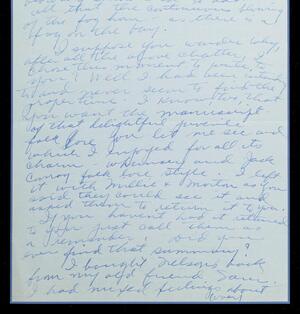 all that the continuous blowing
of the fog horn as there is a
fog on the bay.
I suppose you wonder why,
after all the above chatter, I
chose this moment to write to
you? Well I had been intending
to and never seem to find the
proper time. I know too, that
you want the manuscript
of that delightful juvenile
folk lore you let me see and
which I enjoyed for all its
charm - whimsey and Jack
Conroy folk lore style. I left
it with Millie & Morton as you
said they could see it and
asked them to return it to you.
If you haven't had it returned
to you just call them as
a reminder. Did you
ever find that summary?
I bought Nelson's book
from my old friend
I had mixed feelings about
(over)